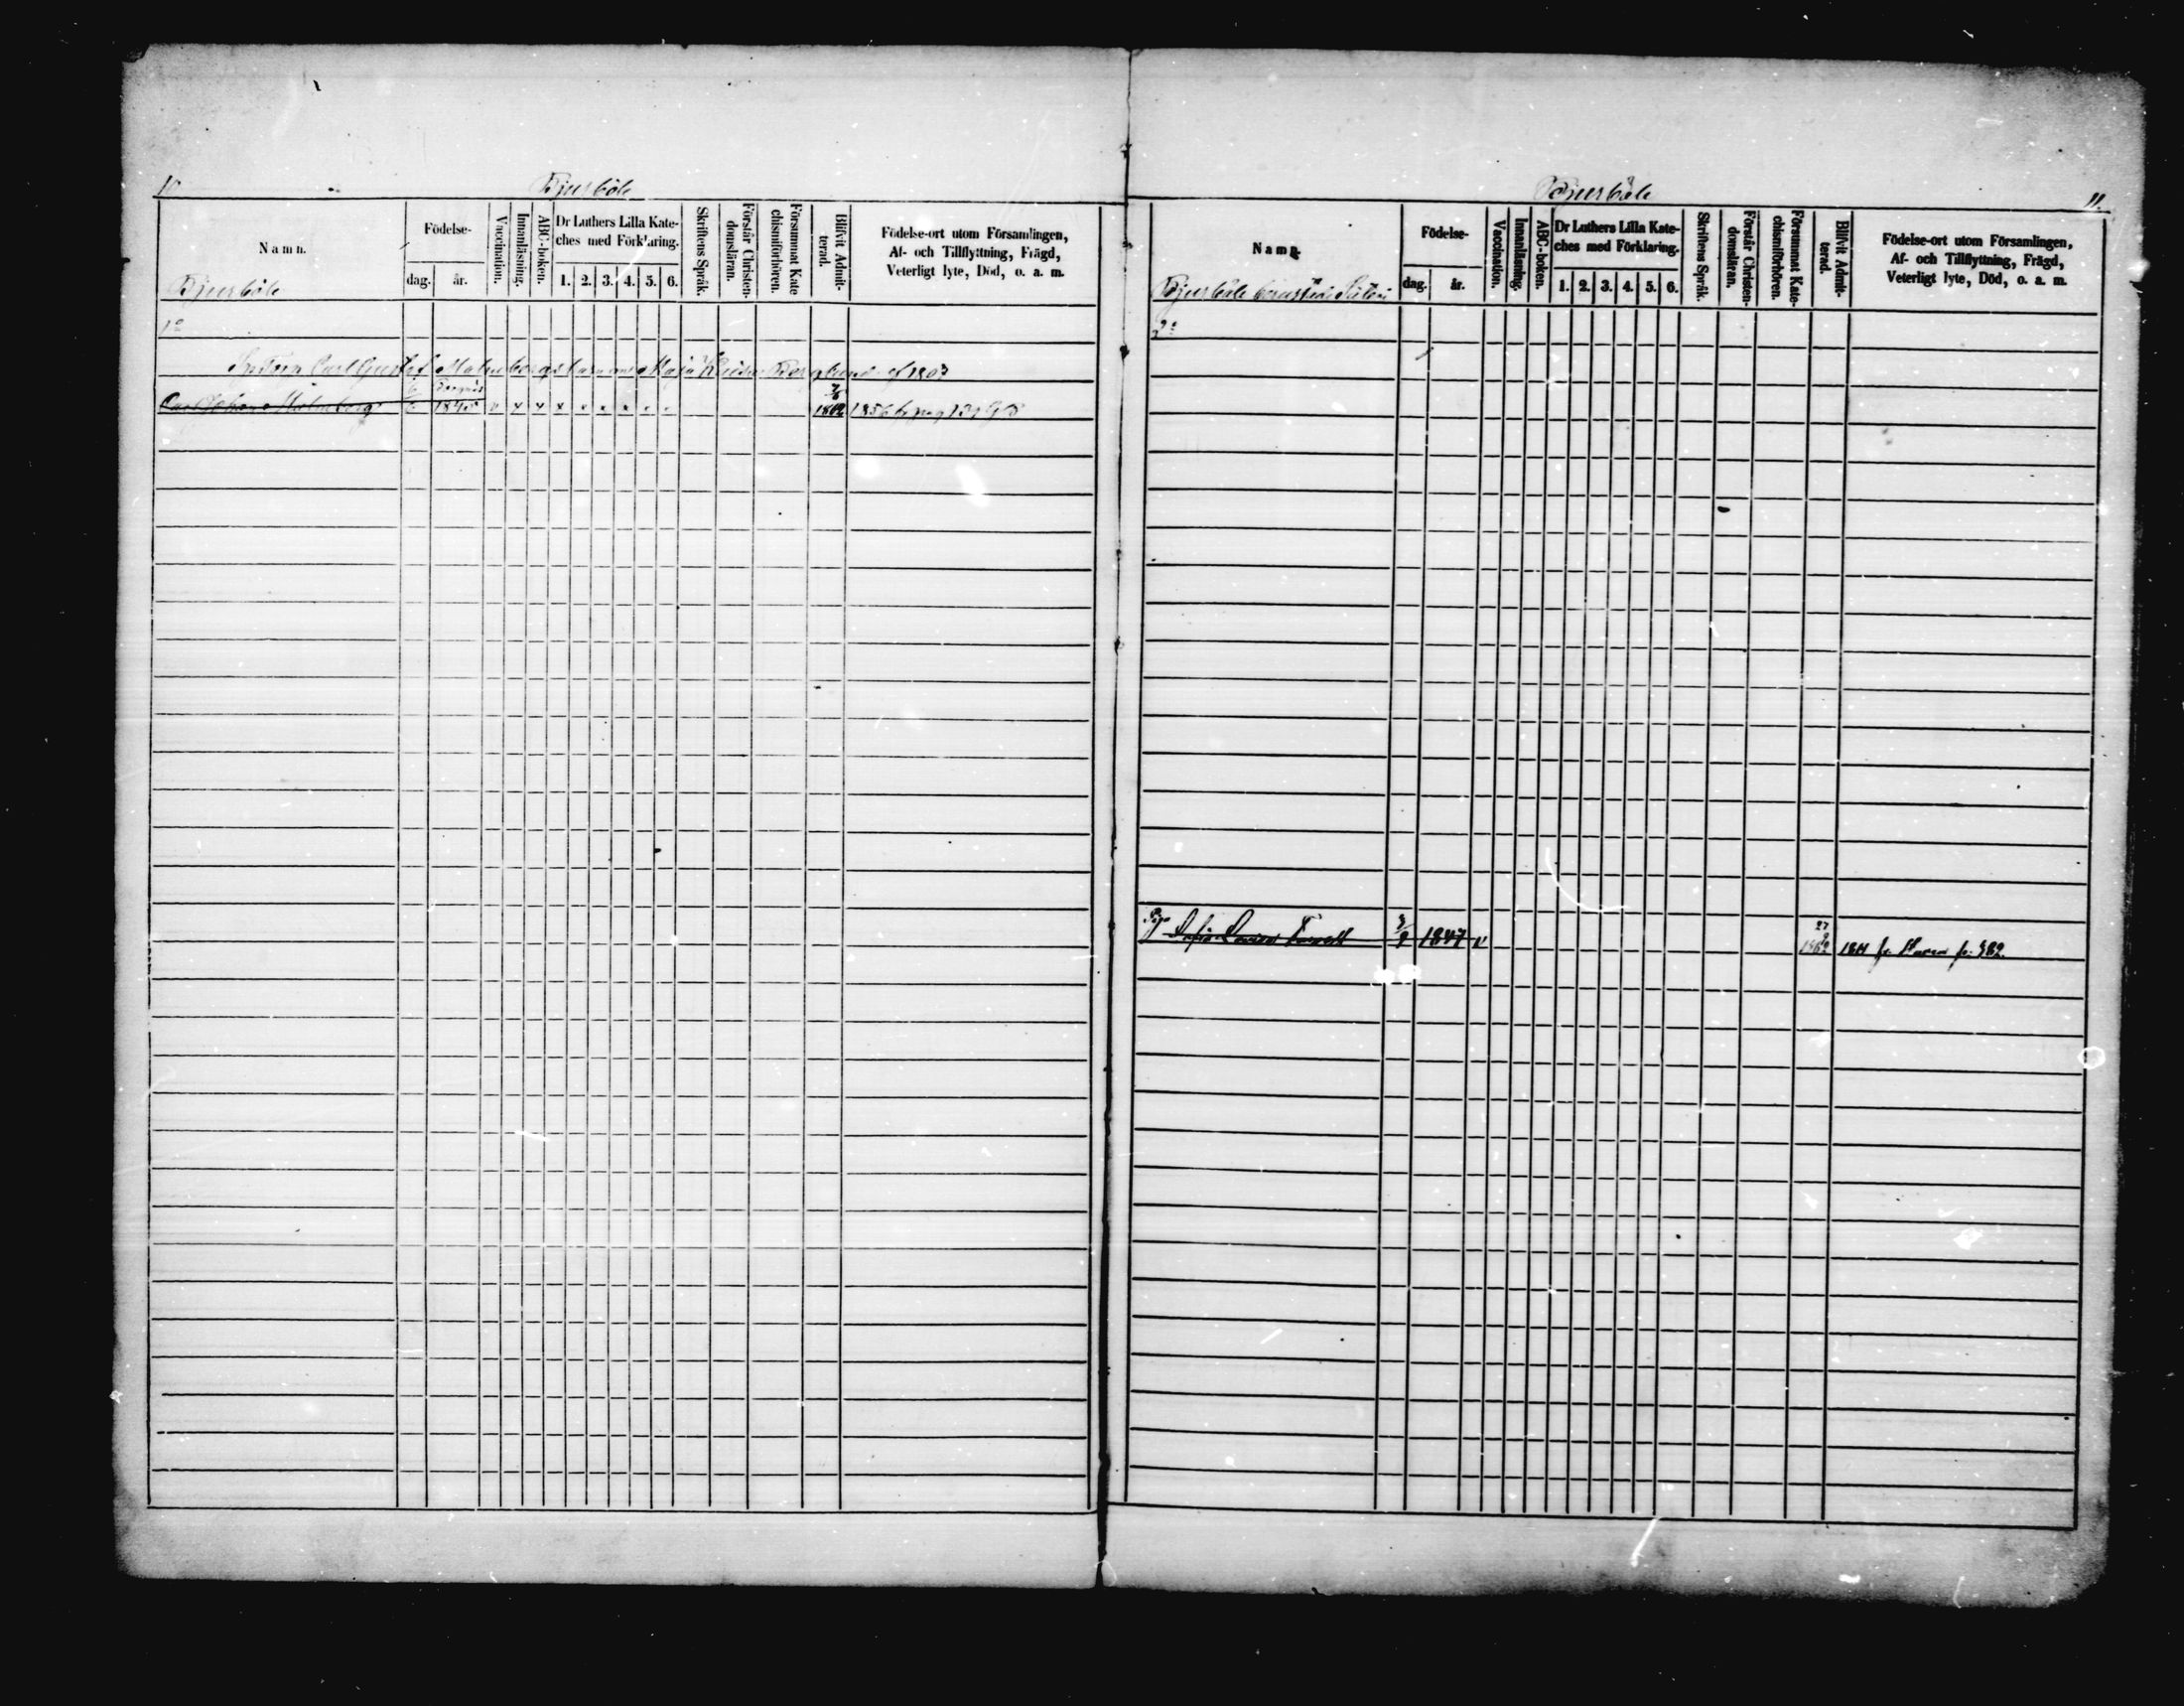 10
Bjurböle
Namn.
Födelse-
dag.
år.
Vaccination.
Innanläsning.
ABC-boken.
Dr Luthers Lilla Kate-
ches med Förklaring.
1. 2. 3. 4. 5. 6.
Skriftens Språk.
Förstår Christen-
domsläran.
Försummat Kate
chismiförhören.
Blifvit Admit-
terad.
Födelse-ort utom Församlingen,
Af- och Tillflyttning, Frägd,
Veterligt lyte, Död, o. a. m.
Bjurböle
1º
Carl Gustaf Malmbergs Maja Berglund 1803
Carl Johan Malmberg 6 1845 v x x x x x x 1862 1856
Bjurböle
11.
Namn.
Födelse-
dag.
år.
Vaccination.
Innanläsning.
ABC-boken.
Dr Luthers Lilla Kate-
ches med Förklaring.
1. 2. 3. 4. 5. 6.
Skriftens Språk.
Förstår Christen-
domsläran.
Försummat Kate-
chismiförhören.
Blifvit Admit-
terad.
Födelse-ort utom Församlingen,
Af- och Tillflyttning, Frägd,
Veterligt lyte, Död, o. a. m.
Bjurböle
2º
Sofia Lovisa 1847 v 27 1862 p. 382.